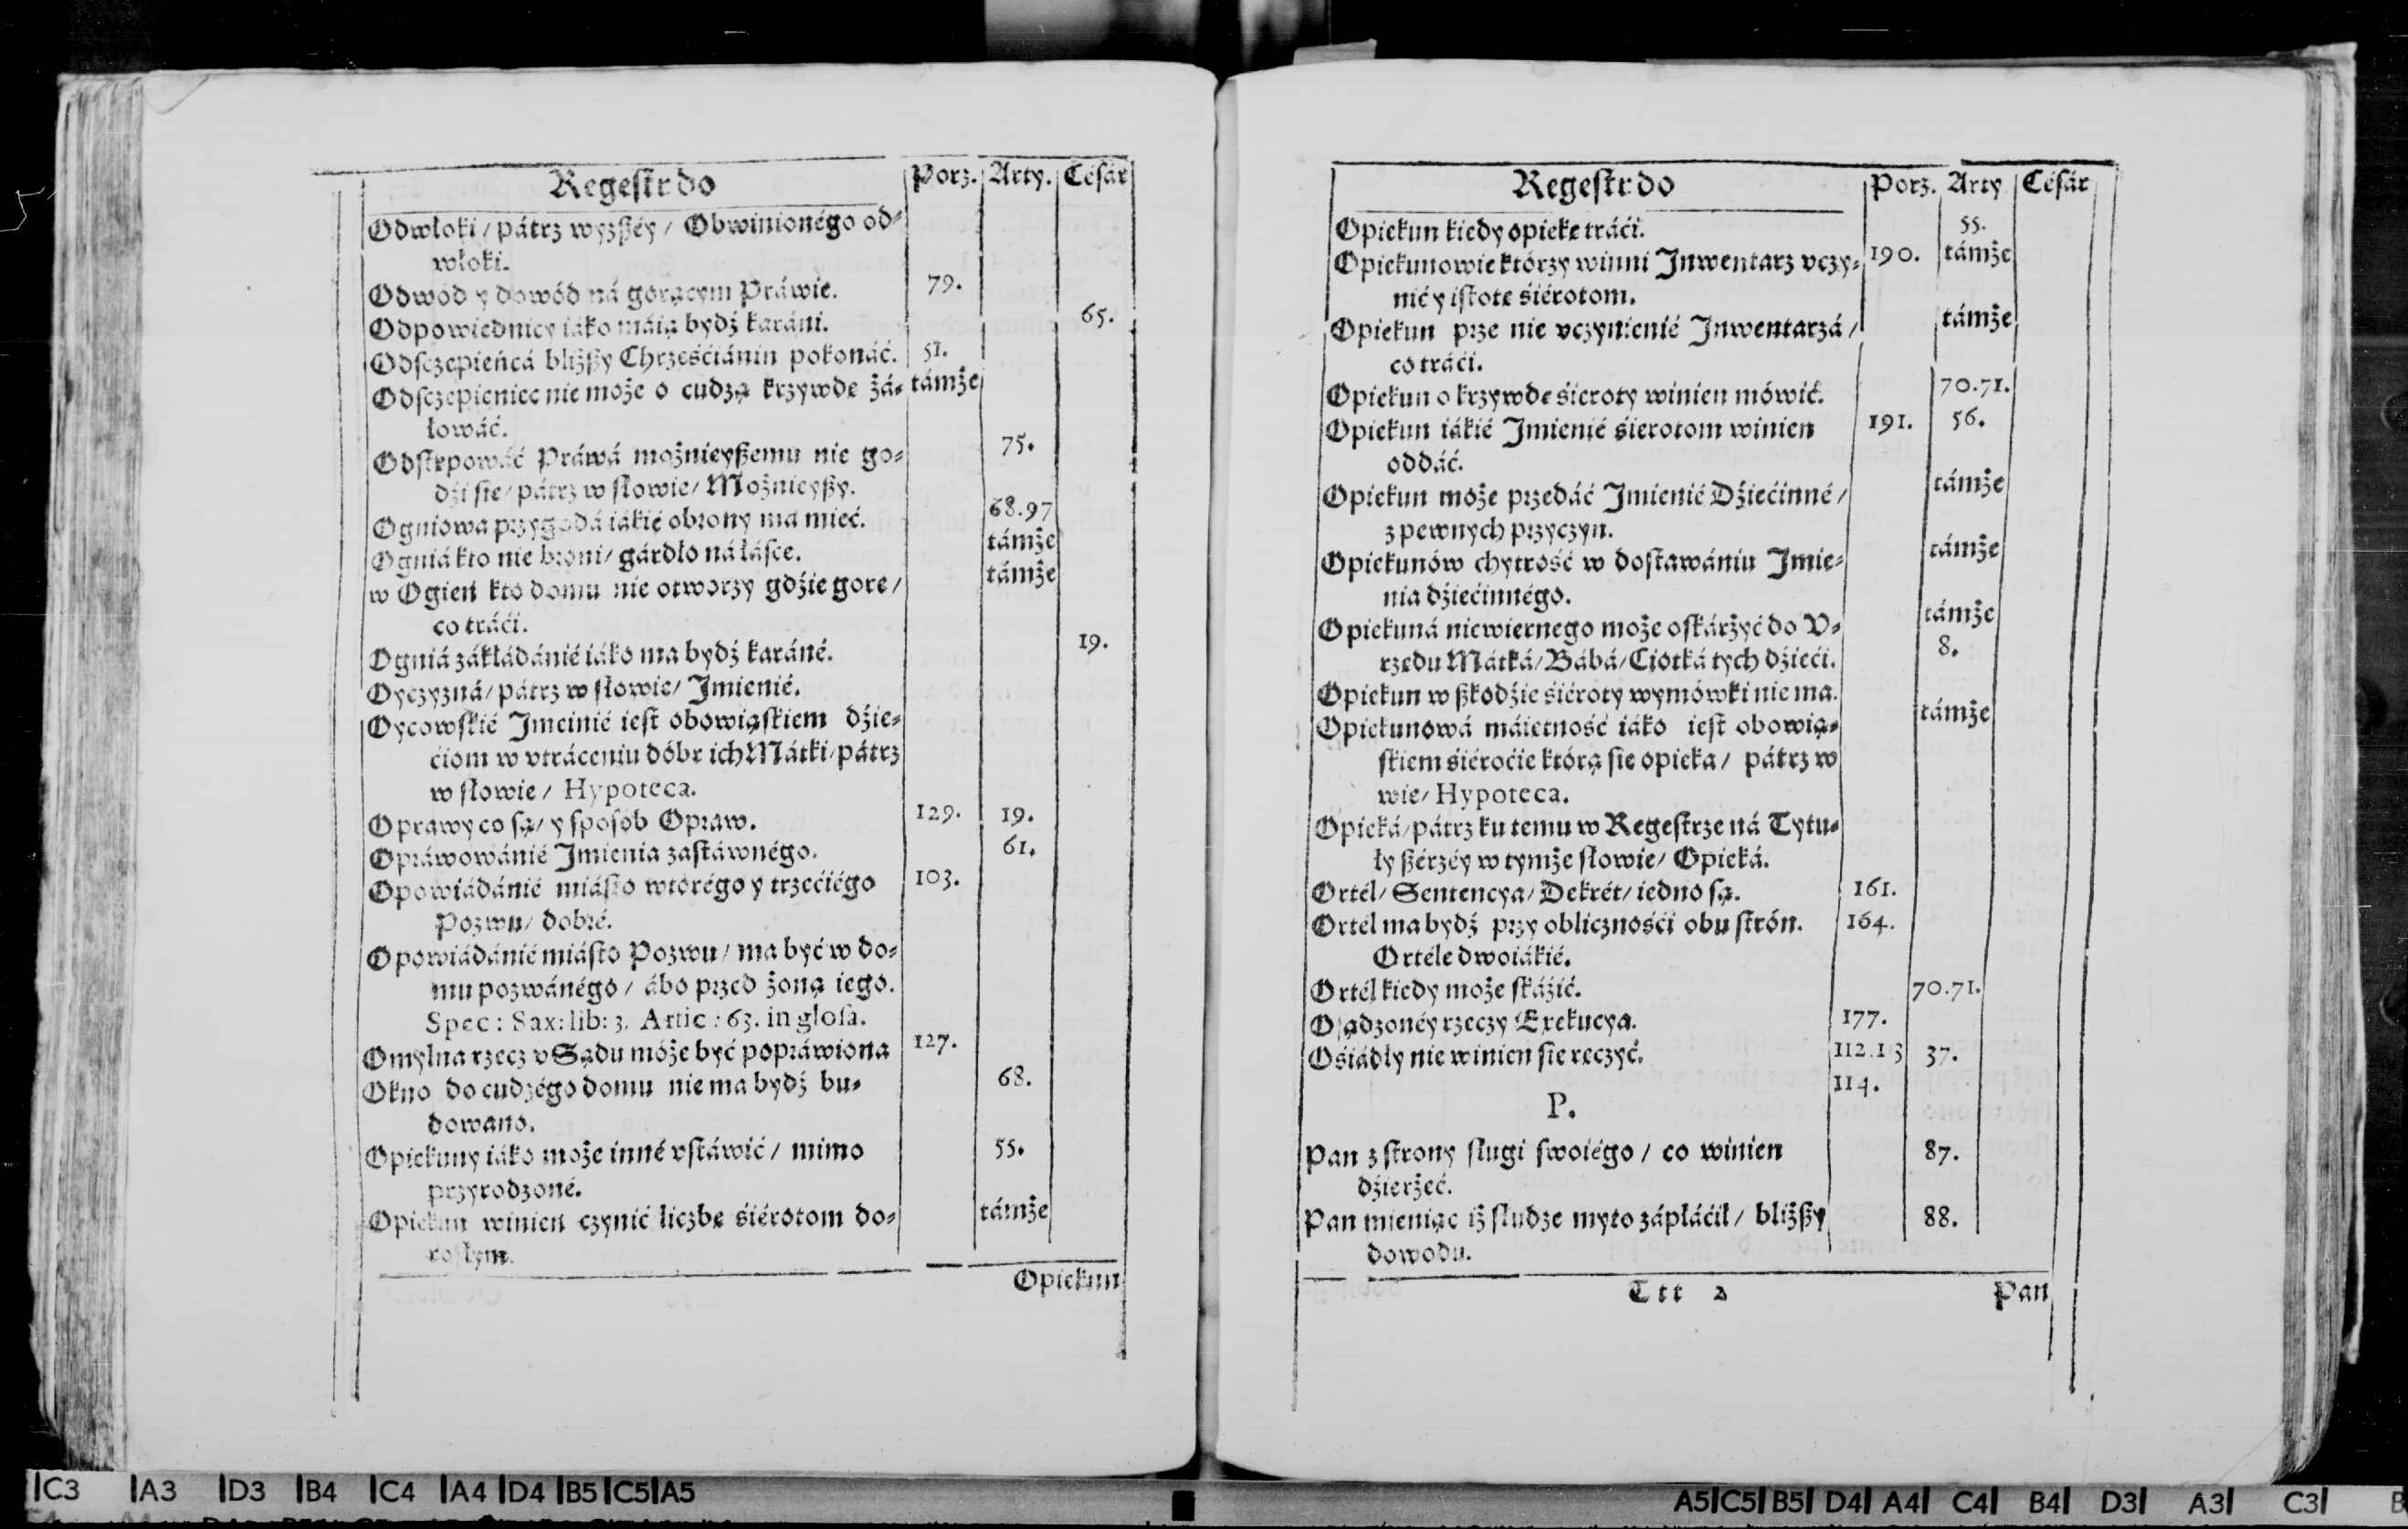 Regestr do Porz. Arty. Césár
Odwłoki / pátrz wyzßéy / Obwinionégo od⸗
włoki.
Odwod y dowód ná gorącym Práwie. 79.
Odpowiednicy iáko máią bydź karáni. 65.
Odsczepieńcá bliżßy Chrześćiánin pokonáć. 51.
Odsczepieniec nie może o cudzą krzywdę żá⸗ támże
łowáć.
Odstępowáć Práwá możnieyßemu nie go⸗ 75.
dźi sie / pátrz w słowie / Możnieyßy.
Ogniowa przygodá iákié obrony ma mieć. 68.97
Ogniá kto nie broni / gárdło ná łásce. támże
w Ogień kto domu nie otworzy gdźie gore / támże
co tráći.
Ogniá zákłádánié iáko ma bydź karáné. 19.
Oyczyzná / pátrz w słowie / Jmienié.
Oycowskié Jmeinié iest obowiąskiem dźie⸗
ćiom w vtráceniu dóbr ich Mátki / pátrz
w słowie / Hypoteca.
Oprawy co są / y sposób Opraw. 129. 19.
Opráwowánié Jmienia zastáwnégo. 61.
Opowiádánié miásto wtórégo y trzećiégo 103.
Pozwu / dobré.
Opowiádánié miásto Pozwu / ma być w do⸗
mu pozwánégo / ábo przed żoną iego.
Spec: Sax: lib: 3. Artic: 63. in glosa.
Omylna rzecz v Sądu móże być popráwiona 127.
Okno do cudzégo domu nie ma bydź bu⸗ 68.
dowano.
Opiekuny iáko może inné vstáwić / mimo 55.
przyrodzoné.
Opiekun winień czynić liczbę śiérotom do⸗ támże
rosłym.
Opiekun
Regestr do Porz. Arty Césár
Opiekun kiedy opiekę tráći. 55.
Opiekunowie którzy winni Jnwentarz vczy⸗ 190. támże
nić y istotę śiérotom.
Opiekun prze nie vczynienié Jnwentarzá / támże
co tráći.
Opiekun o krzywdę śieroty winien mówić. 70.71.
Opiekun iákié Jmienié śierotom winien 191. 56.
oddáć.
Opiekun może przedáć Jmienié Dźiećinné / támże
z pewnych przyczyn.
Opiekunów chytrość w dostawániu Jmie⸗ támże
nia dźiećinnégo.
Opiekuná niewiernego może oskárżyć do V⸗ támże
rzędu Mátká / Bábá / Ciotká tych dźieći.
Opiekun w ßkodźie śiéroty wymówki nie ma. 8.
Opiekunowá máiętność iáko iest obowią⸗ támże
skiem śiéroćie którą sie opieka / pátrz w
wie / Hypoteca.
Opieká / pátrz ku temu w Regestrze ná Tytu⸗
ły ßérzéy w tymże słowie / Opieká.
Ortél / Sentencya / Dekrét / iedno są. 161.
Ortél ma bydź przy obliczności obu strón. 164.
Ortéle dwoiákié.
Ortél kiedy może skáźić. 70.71.
Osądzonéy rzeczy Exekucya. 177.
Ośiádły nie winien sie ręczyć. 112.113 37.
114.
P.
Pan z strony sługi swoiégo / co winien 87.
dźierżeć.
Pan mieniąc iż słudze myto zápłáćił / bliżßy 88.
dowodu.
Ttt 2 Pan
C3 A3 D3 B4 C4 A4 D4 B5 C5 A5
A5 C5 B5 D4 A4 C4 B4 D3 A3 C3 B